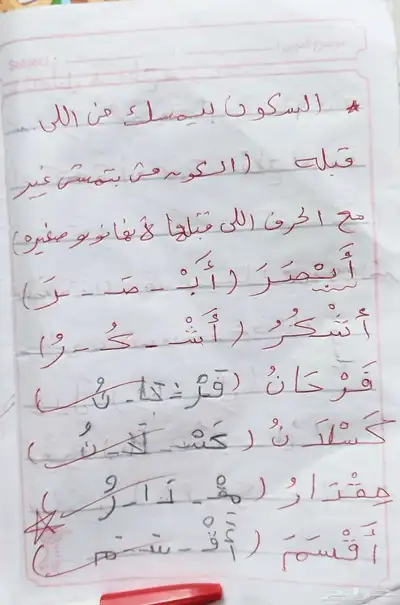 * السكون بيمسك من اللي
قبله (السكون مش بتمشي غير
مع الحرف اللي قبلها لأنها نونو صغيره)
أَبْصَرَ (أَبْ - صَ - رَ)
أَشْكُرُ (أَشْ - كُ - رُ)
فَرْحَانُ (فَرْ - حَا - نُ)
كَسْلَانُ (كَسْ - لَا - نُ)
مِقْدَارُ (مِقْ - دَا - رُ)
أَقْسَمَ (أَقْ - سَ - مَ)